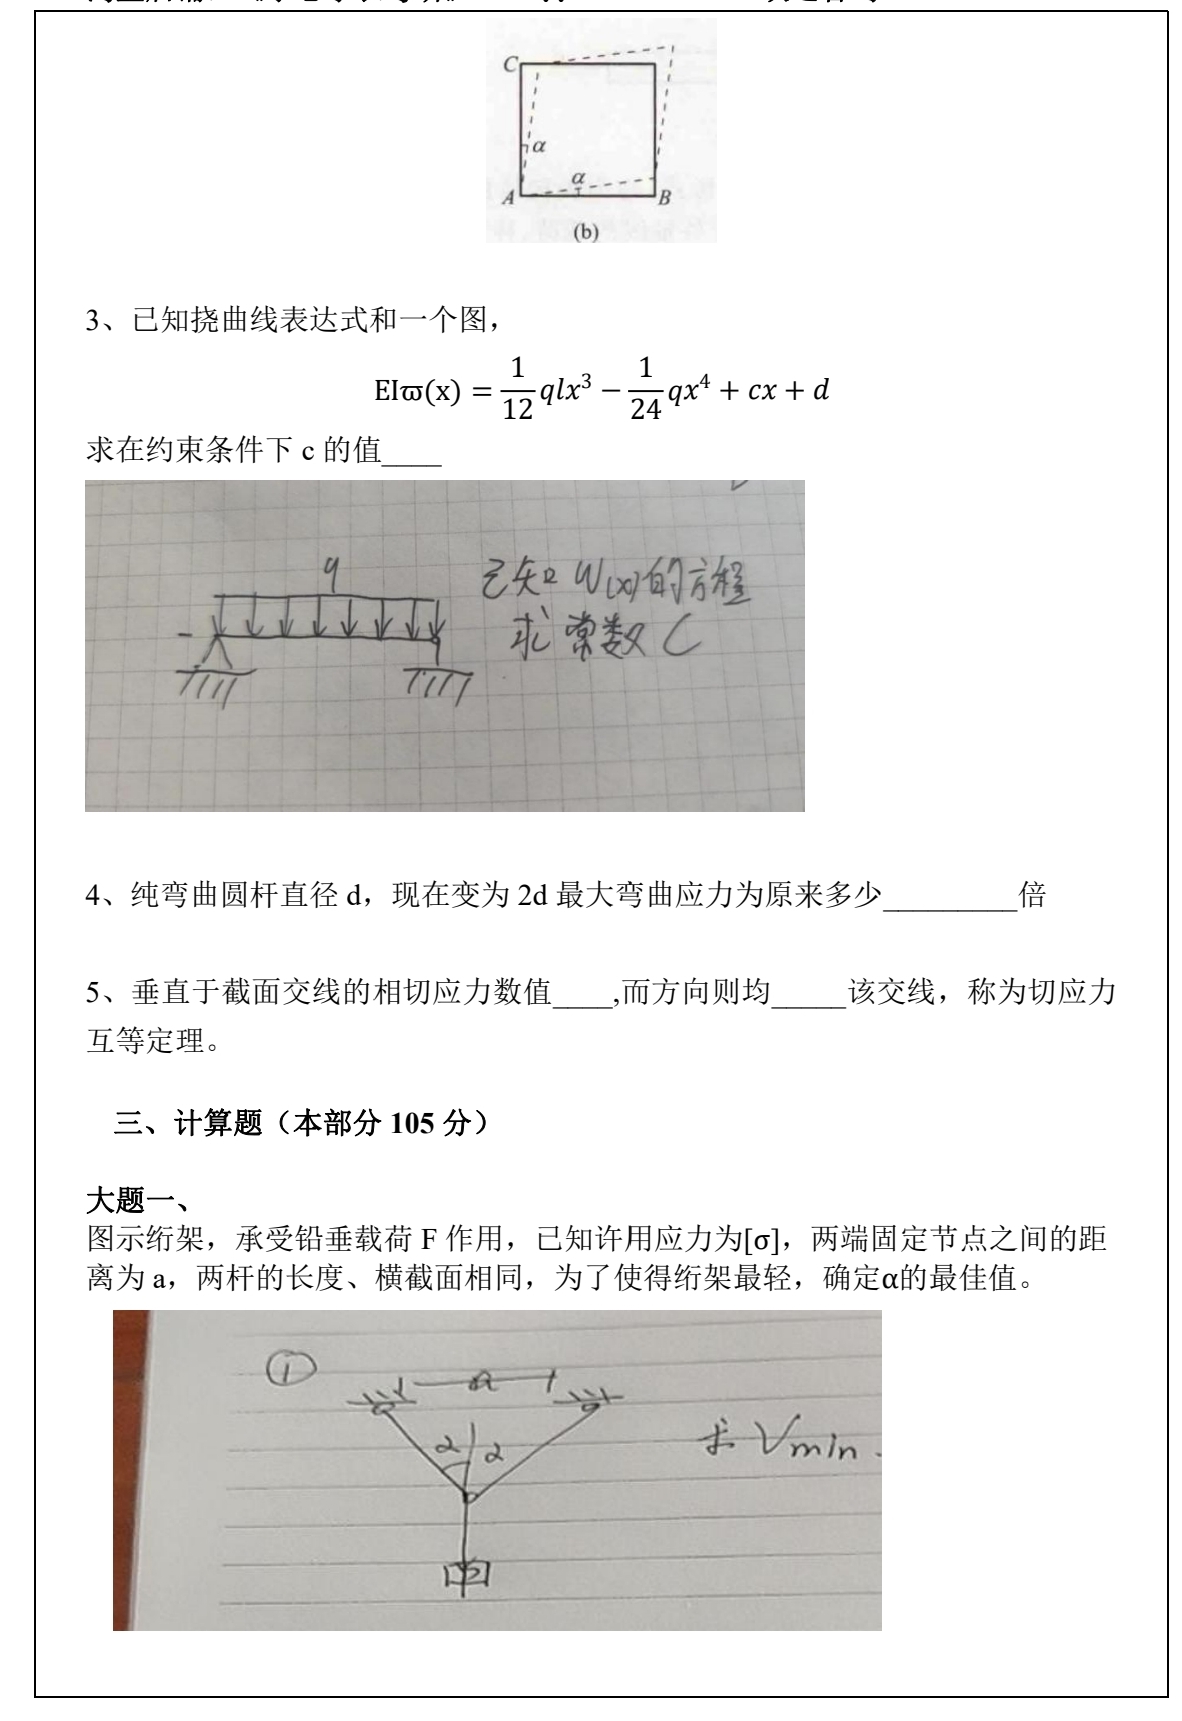 C
α
α
A
B
(b)
3、已知挠曲线表达式和一个图，
EIϖ(x) = 1/12 qlx³ − 1/24 qx⁴ + cx + d
求在约束条件下 c 的值____
q
已知 W(x)的方程
求常数 C
4、纯弯曲圆杆直径 d，现在变为 2d 最大弯曲应力为原来多少_________倍
5、垂直于截面交线的相切应力数值____,而方向则均_____该交线，称为切应力
互等定理。
三、计算题（本部分 105 分）
大题一、
图示绗架，承受铅垂载荷 F 作用，已知许用应力为[σ]，两端固定节点之间的距
离为 a，两杆的长度、横截面相同，为了使得绗架最轻，确定α的最佳值。
①
a
α α
求 Vmin.